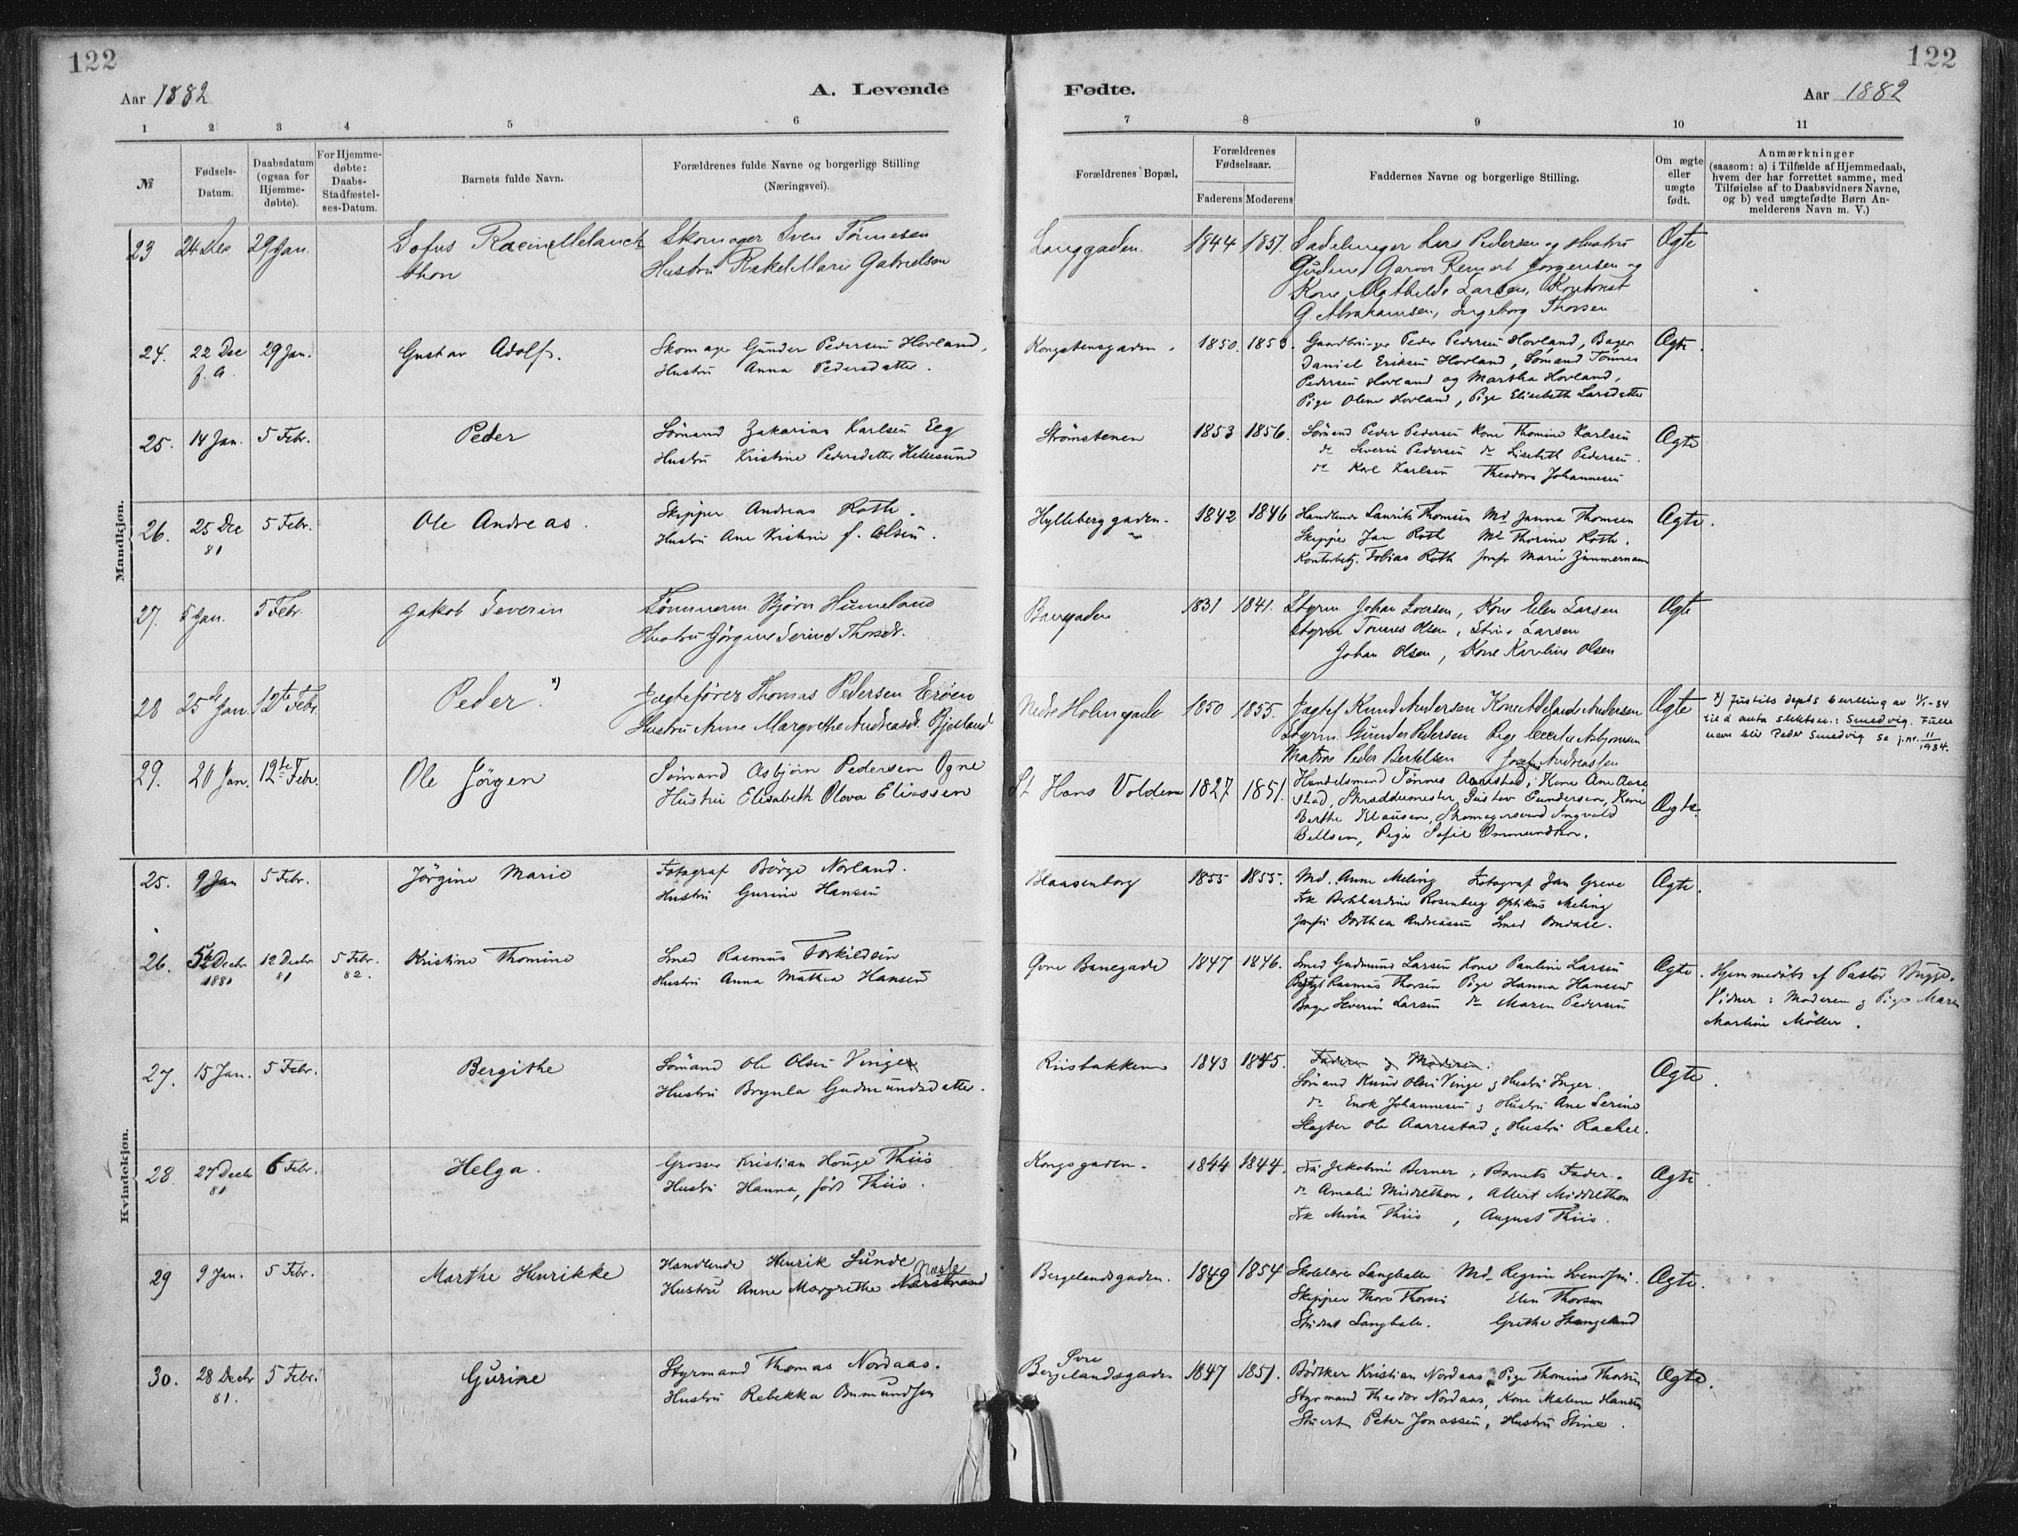 122
122
Aar 1882
A. Levende
Fødte.
Aar 1882
1 2 3 4 5 6
7 8 9 10 11
№
Fødsels-
Datum.
Daabsdatum
(ogsaa for
Hjemme-
døbte).
For Hjemme-
døbte:
Daabs-
Stadfæstel-
ses-Datum.
Barnets fulde Navn.
Forældrenes fulde Navne og borgerlige Stilling
(Næringsvei).
Forældrenes Bopæl.
Forældrenes
Fødselsaar.
Faderens Moderens
Faddernes Navne og borgerlige Stilling.
Om ægte
eller
uægte
født.
Anmærkninger
(saasom: a) i Tilfælde af Hjemmedaab,
hvem der har forrettet samme, med
Tilføielse af to Daabsvidners Navne,
og b) ved uægtefødte Børn An-
melderens Navn m. V.)
Mandkjøn.
23 24 Dec 29 Jan.
Skomager Sven Tönnesen
thon
Hustru Rakel Marie Gabrielsen
Langgaden. 1844 1851.
Sadelmager Lars Pedersen og Hustru
Garver Jörgensen og
Kone Mathilde Larsen,
G Abrahamsen, Ingeborg Thorsen
Ægte
24. 22 Dec 29 Jan.
f. A.
Gustav Adolf.
Skomager Gunder Pedersen Hovland,
Hustru Anna Pedersdatter.
Kongstensgaden. 1850. 1853.
Gaardbruger Peder Pedersen Hovland, Bager
Daniel Eriksen Hovland, Sømand Tønnes
Pedersen Hovland og Martha Hovland,
Pige Olene Hovland, Pige Elisabeth Larsdatter
Ægte.
25. 14 Jan. 5 Febr.
Peder
Sømand Zakarias Karlsen Eeg
Hustru Kristine Pedersdatter
Strömstenen 1853 1856.
Sømand Peder Pedersen Kone Thomine Karlsen
do Severin Pedersen do Lisebeth Pedersen.
do Karl Karlsen Theodora Johannesen
Ægte
26. 25 Dec 5 Febr.
81
Ole Andreas.
Skipper Andreas Roth.
Hustru Ane Kristine f. Olsen.
Hylleberggaden. 1842 1846
Handlende Laurits Thomsen Md. Janna Thomsen
Skipper Jan Roth Md Thorine Roth.
Kontorbetj. Tobias Roth Jomfr Marie Zimmermann
Ægte.
27. 5 Jan. 5 Febr.
Jakob Severin
Tömmerm. Bjørn Humeland
Hustru Jörgine Serine Thorsdt.
Banegaden 1831 1841.
Styrm Johan Iversen, Kone Elen Larsen
Styrm Tönnes Olsen, Stine Larsen
Johan Olsen, Kone Karoline Olsen
Ægte
28 25de Jan. 12te Febr.
Peder. x)
Jægtefører Thomas Pedersen Eröen
Hustru Anne Margrethe Andreasdt. Bjelland
Nedre Holmegade 1850 1855.
Jægtef Knud Andersen Kone Adelaide Andersen
Styrm. Gunder Pedersen Pige Asbjørnsen
Matros Peder Bertelsen Josef Andreassen
Ægte
x) Justits depts bevilling av 11/1-34
til å anta slektsn.: Smedvig. Fulle
navn blir Peder Smedvig Se j.nr. 11/1934.
29. 20 Jan. 12te Febr.
Ole Jørgen
Sømand Asbjørn Pedersen Ogne
Hustru Elisabeth Olava Eliassen
St Hans Volden 1827 1851.
Handelsmand Tönnes Aarestad, Kone Ane Aare
stad, Skræddermester Gustav Gundersen, Kone
Berthe Klausen, Skomagersvend Ingvald
Bellsen, Pige Sofie Ommundsen.
Ægte.
Kvindekjøn.
25. 9 Jan 5 Febr.
Jörgine Marie
Fotograf Börge Norland.
Hustru Gurine Hansen
Blaasenborg 1855 1855.
Md. Anne Meling Fotograf Jan Greve
Frk Bernhardine Rosenberg Optikus Meling
Jomfru Dorthea Andreassen Smed Omdal.
Ægte.
26. 5te Decbr 12 Decbr 5 Febr.
1881 81 82.
Kristine Thomine
Smed Rasmus Torkildsen
Hustru Anna Mathea Hansen
Øvre Banegade 1847 1846.
Smed Gudmund Larsen Kone Pauline Larsen
Rasmus Thorsen Pige Hanna Hansen
Bager Severin Larsen do Maren Pedersen
Ægte.
Hjemmedöbt af Pastor Bugge.
Vidner: Moderen og Pige Maren
Martine Möller.
27. 15 Jan. 5 Febr.
Bergithe
Sømand Ole Olsen Vinge
Hustru Brynla Gudmundsdatter.
Riisbakken 1843 1845.
Faderen og Moderen.
Sømand Knud Olsen Vinge og Hustru Inger.
do Enok Johannesen og Hustru Ane Serine
Slagter Ole Aarrestad og Hustru Rachel.
Ægte.
28. 27 Decbr 6 Febr.
81
Helga.
Grosser Kristian Houge Thiis
Hustru Hanna, født Thiis.
Kongsgaden. 1844 1844.
Fru Jakobine Berner, Barnets Fader.
do Amalie Middelthon, Albert Middelthon
Frk Mina Thiis, August Thiis.
Ægte.
29 9 Jan. 5 Febr.
Marthe Henrikke
Handlende Henrik Sunde
Hustru Anne Margrethe Narstrand
Bergelandsgaden. 1849 1854
Skolelærer Langballe Md. Regine Svendsen.
Skipper Thore Thorsen Elen Thorsen
Student Langballe. Grethe Stangeland
Ægte.
30. 28 Decbr 5 Febr.
81.
Gurine
Styrmand Thomas Nordaas.
Hustru Rebekka Ommundsen
Øvre
Bergelandsgaden 1847 1851.
Bødker Kristian Nordaas, Pige Thomine Thorsen
Styrmand Theodor Nordaas, Kone Malene Hansen
Stuert Peter Jonassen, Hustru Stine.
Ægte.